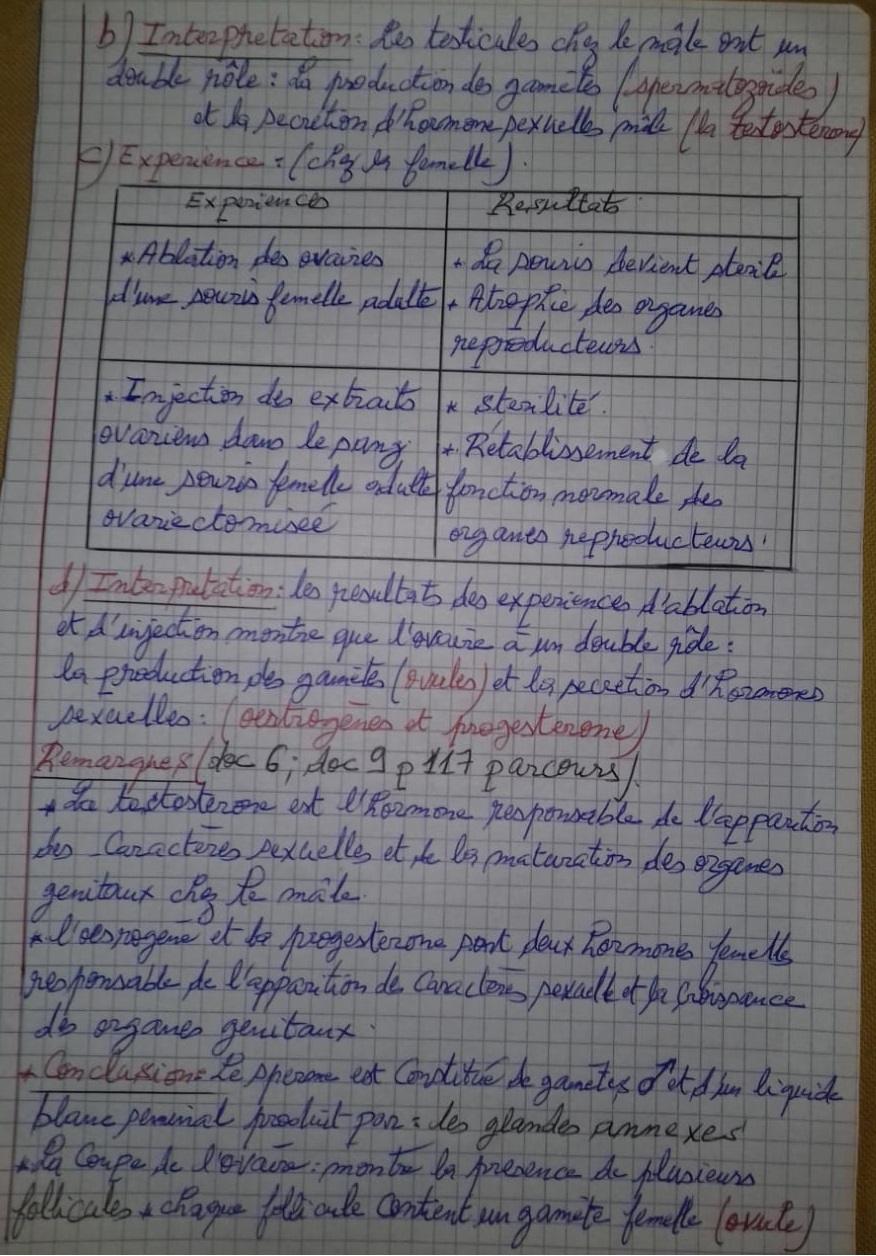 b) Interpretation: Les testicules chez le mâle ont un
double rôle : La production des gamètes (spermatozoïdes)
et la secretion d'hormone sexuelles mâle (la testosterone)
c) Experience : (chez la femelle).
Experiences
Resultats
* Ablation des ovaires
d'une souris femelle adulte
+ La souris devient sterile
+ Atrophie des organes
reproducteurs.
* Injection des extraits
ovariens dans le sang
d'une souris femelle adulte
ovariectomiseé
* sterilité.
+ Retablissement de la
fonction normale des
organes reproducteurs.
d) Interpretation: les resultats des experiences d'ablation
et d'injection montre que l'ovaire à un double rôle :
la production des gamètes (ovules) et la secretion d'hormones
sexuelles : (oestrogènes et progesterone)
Remarques (doc 6 ; doc 9 p 117 parcours).
* La testosterone est l'hormone responsable de l'apparition
des Caractères sexuelles et de la maturation des organes
genitaux chez le mâle.
* l'oesrogene et la progesterone sont deux hormones femelle
responsable de l'apparition des Caractères sexuelle et la Croissance
des organes genitaux.
+ Conclusion : Le sperme est Constitué de gamètes ♂ et d'un liquide
blanc seminal produit par : les glandes annexes
* La Coupe de l'ovaire : montre la presence de plusieurs
follicules * chaque follicule Contient un gamète femelle (ovule)